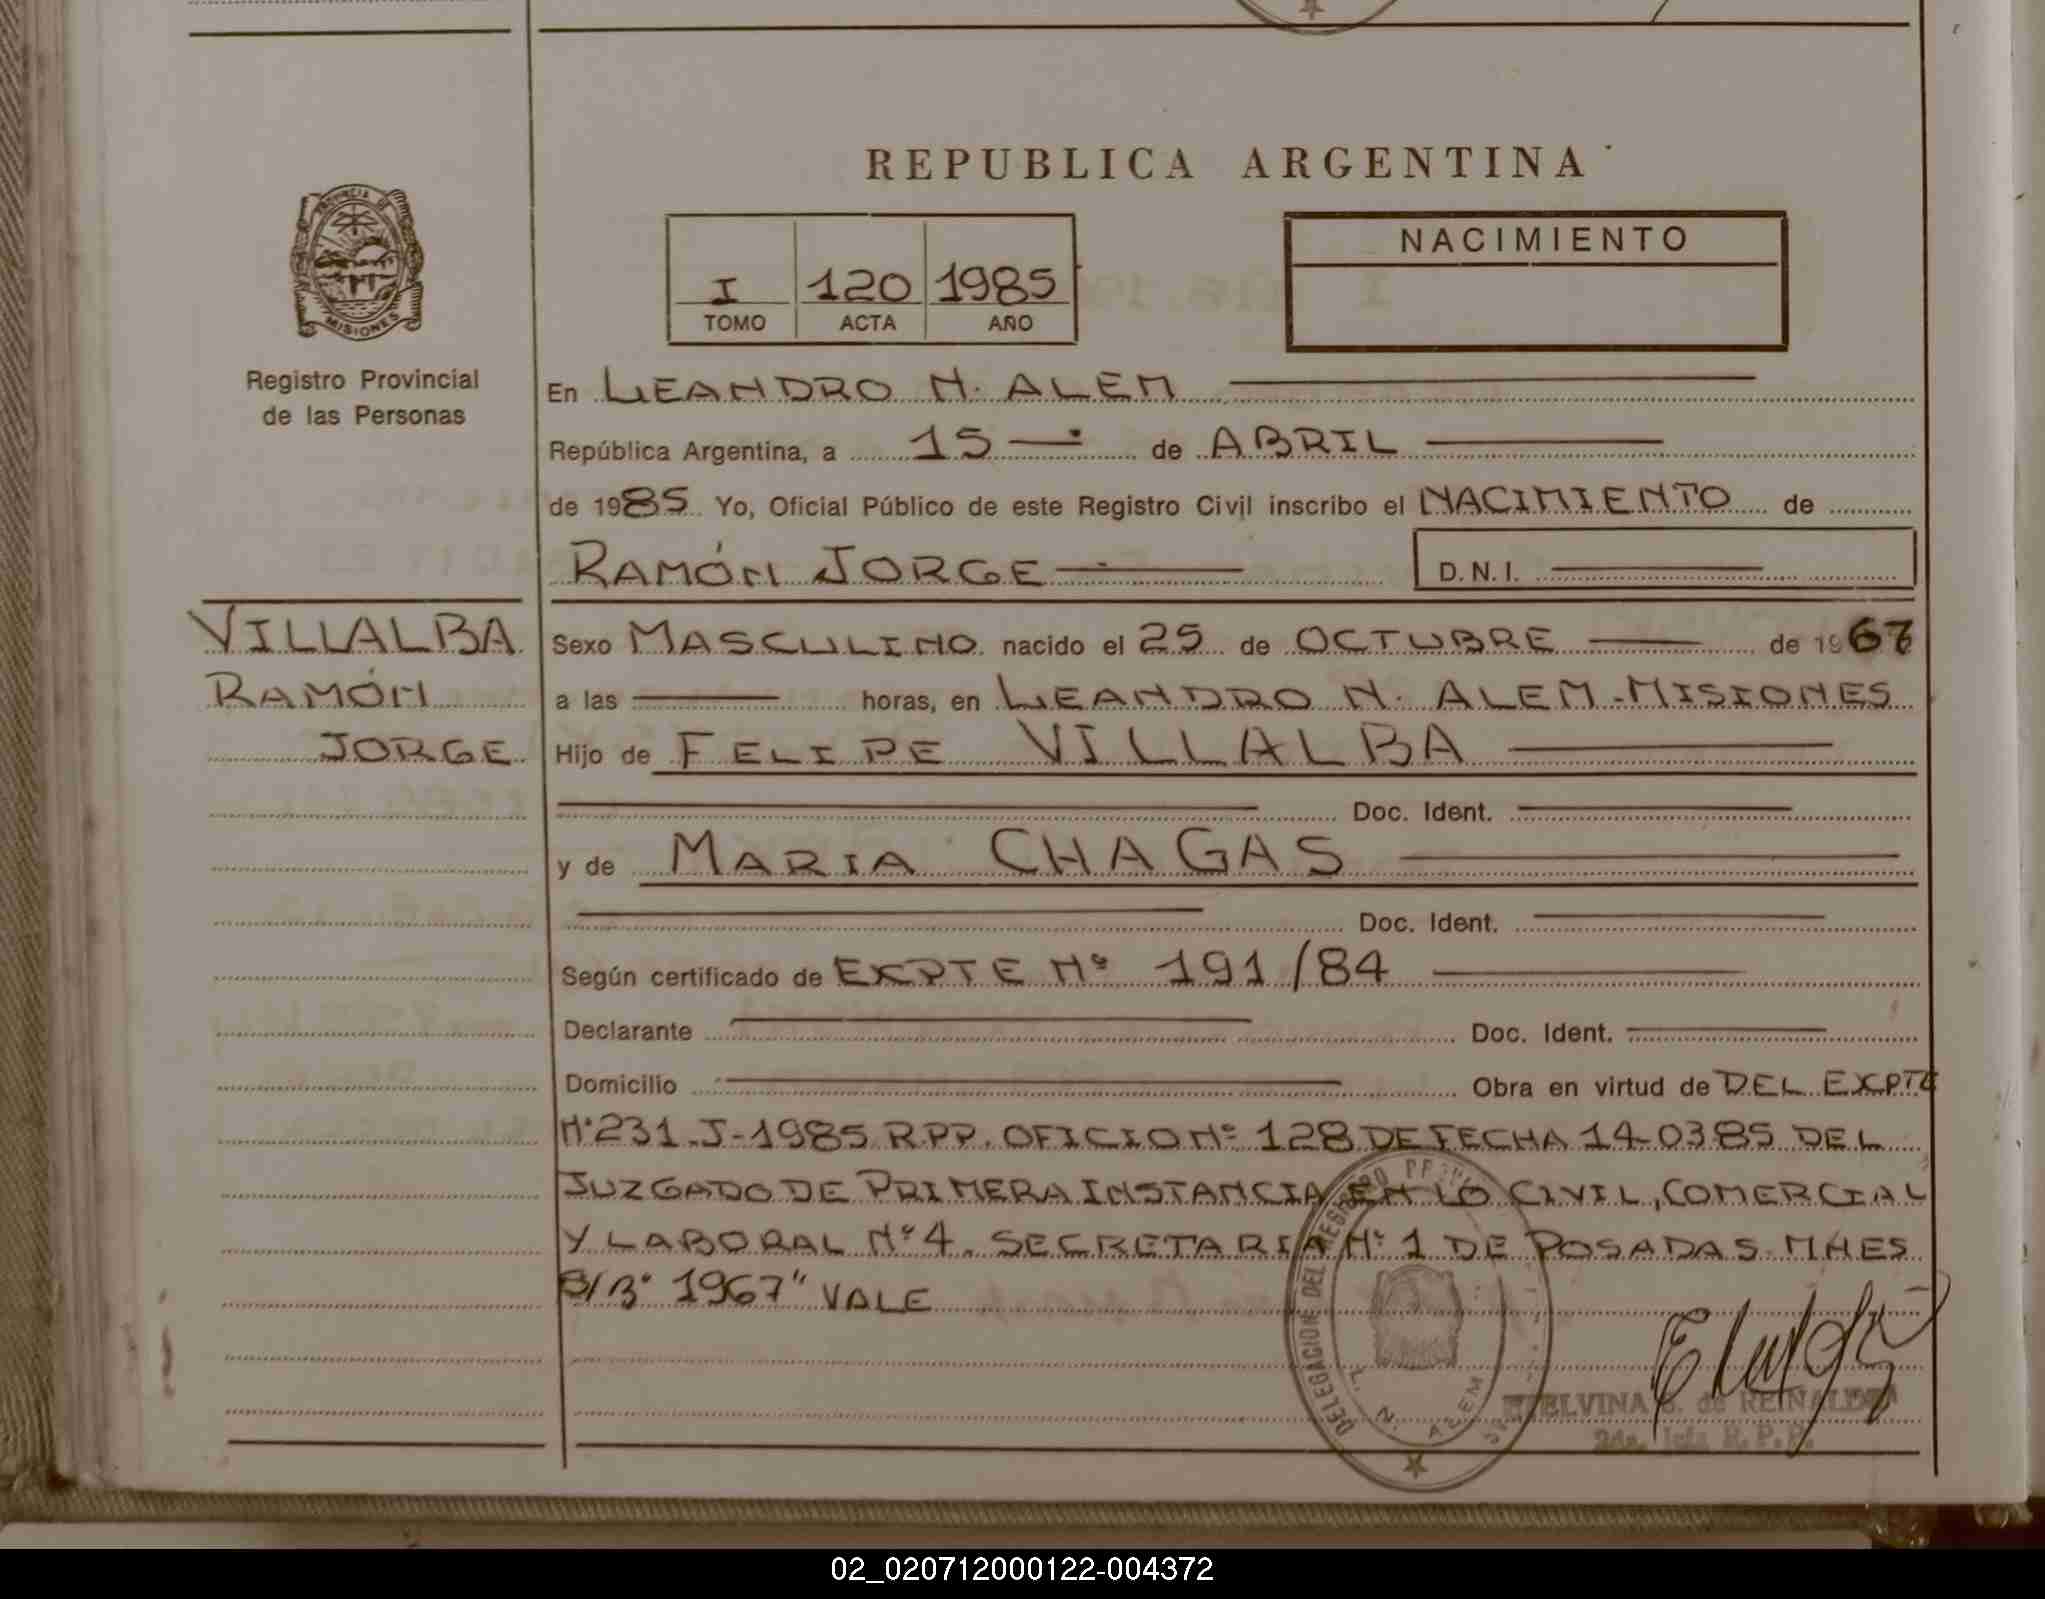 REPUBLICA ARGENTINA
PROVINCIA DE
MISIONES
Registro Provincial
de las Personas
I 120 1985
TOMO ACTA AÑO
NACIMIENTO
En LEANDRO N. ALEM
República Argentina, a 15 de ABRIL
de 1985 Yo, Oficial Público de este Registro Civil inscribo el NACIMIENTO de
RAMÓN JORGE D.N.I.
VILLALBA
RAMÓN
JORGE
Sexo MASCULINO nacido el 25 de OCTUBRE de 1967
a las horas, en LEANDRO N. ALEM-MISIONES
Hijo de FELIPE VILLALBA
Doc. Ident.
y de MARIA CHAGAS
Doc. Ident.
Según certificado de EXPTE Nº 191/84
Declarante Doc. Ident.
Domicilio Obra en virtud de DEL EXPTE
Nº231-J-1985 R.P.P. OFICIO Nº 128 DE FECHA 14-03-85 DEL
JUZGADO DE PRIMERA INSTANCIA EN LO CIVIL, COMERCIAL
Y LABORAL Nº4. SECRETARIA Nº 1 DE POSADAS-MNES
S/Bº 1967" VALE
DELEGACION DEL REGISTRO
L. N. ALEM
ELVINA de REINALDO
R.P.P.
02_020712000122-004372